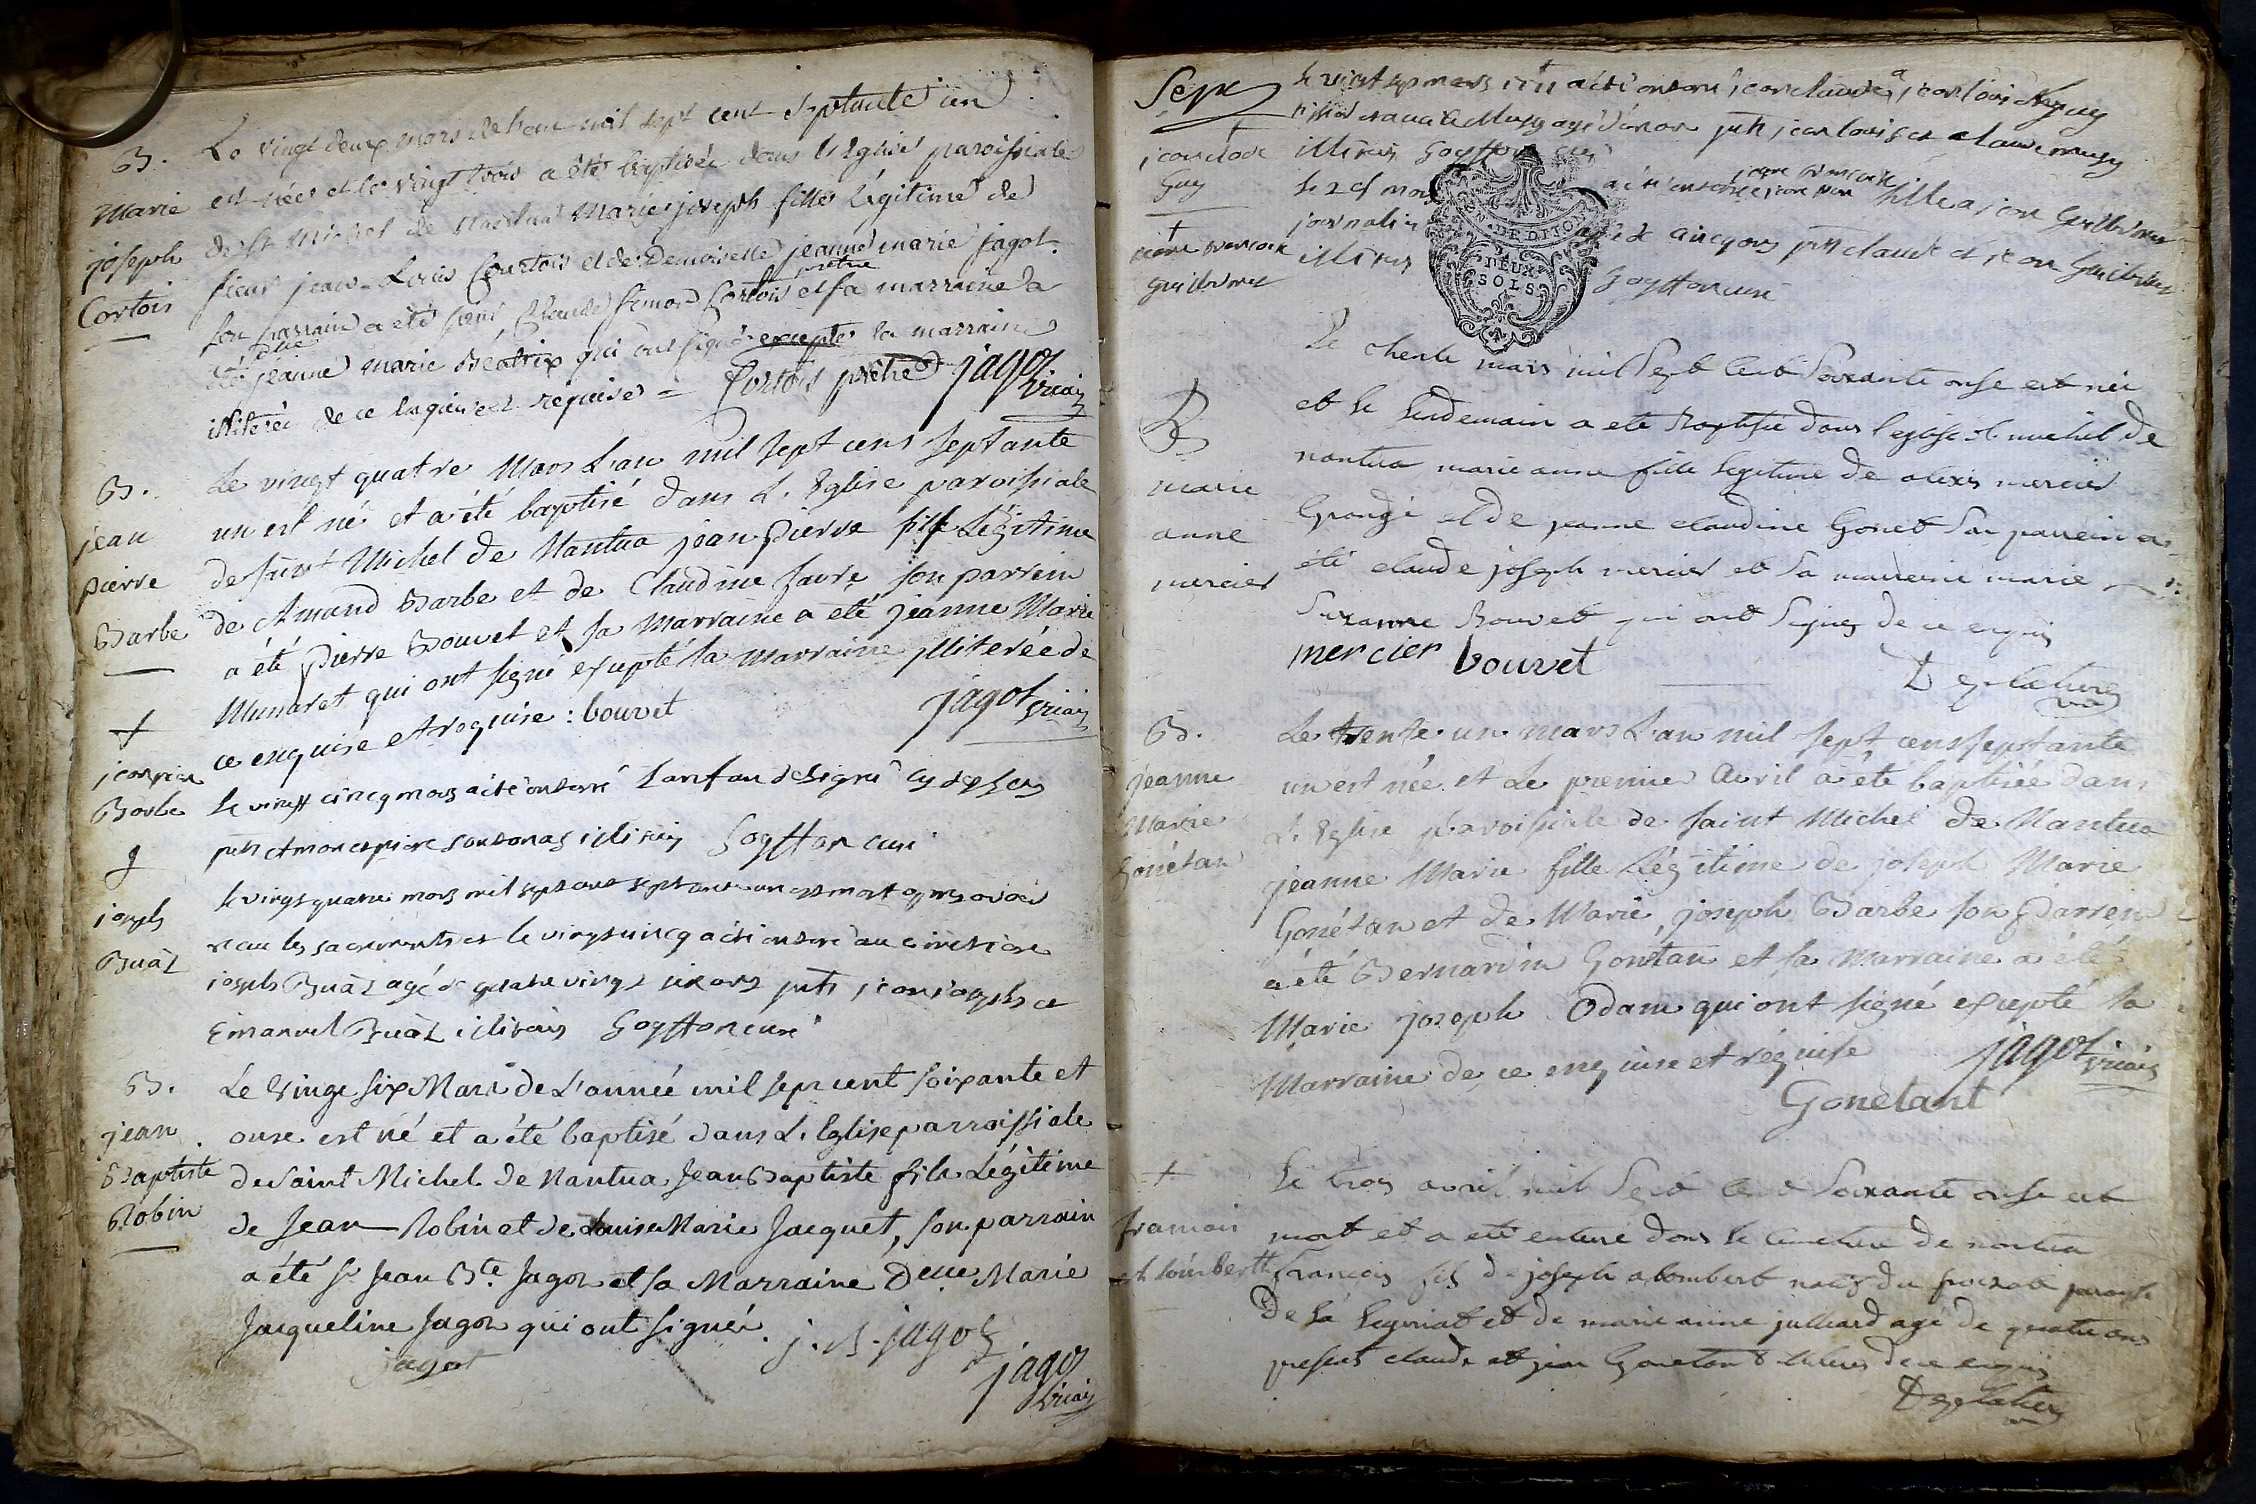 B.
Marie
joseph
Cortois
Le vingt deux mars de l'an mil sept cent septante un
est née et le vingt trois a été baptisée dans l'Eglise paroissiale
de st Michel de Nantua Marie joseph fille légitime de
sieur jean-Louis Courtois et de Demoiselle jeanne marie jagot
son parrain a été sieur Claude Simon Cortois prêtre et sa marraine a
été dlle jeanne marie Béatrix qui ont signé excepté la marraine
illiterée de ce enquise et requise = Cortois prêtre jagot vicaire
B.
jean
pierre
Barbe
Le vingt quatre Mars L'an mil sept cens septante
un est né et a été baptisé dans L'Eglise paroissiale
de saint Michel de Nantua jean pierre fils Légitime
de Amand Barbe et de Claudine favre son parrein
a été pierre Bouvet et sa Marraine a été jeanne Marie
Munaret qui ont signé excepté la Marraine illiterée de
ce enquise et requise : bouvet jagot vicaire
+
jean pierre
Barbe
Le vingt cinq mars a été enterré l'anfan designé cy dessus
illiterés Goyffon curé
joseph
Buat
le vingt quatre mars mil sept cent septante un est mort apres avoir
recu les sacrements et le vingt cinq a été enterré au cimetiere
joseph Buat agé de quatre vingt six ans pnts jean joseph et
Emanuel Buat illiterés Goyffon curé
B.
jean
Baptiste
Robin
Le vingt six Mars de L'année mil sept cent soixante et
onze est né et a été baptisé dans L'Eglise parroissiale
de Saint Michel de Nantua Jean Baptiste fils Légitime
de Jean Robin et de Louise Marie Jacquet, son parrain
a été sr Jean Bte Jagot et sa Marraine Delle Marie
Jacqueline Jagot qui ont signés.
jagot j. B. jagot
jagot vicaire
Sept
+
jean claude
Guy
le vingt sept mars 1771 a été enterré jean claude a jean louis Guy
agé d'un an pnts jean louis et claude
illiterés Goyffon curé
+
pierre francois
Guillermet
le 29 mars a été enterré pierre francois fils a jean Guillermet
journalier agé de cinq ans pnts claude et jean Guillermet
illiterés Goyffon curé
DE DITO
DEUX
SOLS
B
marie
anne
mercier
Le trente mars mil Sept Cent Soixante onse est née
et le lendemain a eté Baptisée dans l'eglise st michel de
nantua marie anne fille legitime de alexis mercier
Grange et de jeanne claudine Gonet Son parrein a
été claude joseph mercier et Sa marreine marie
Suzanne Bouvet qui ont Signés de ce enquis
mercier bouvet
B.
jeanne
Marie
Gonétan
Le trente-un mars L'an mil sept cens septante
un est née et Le premier avril a été baptisée dans
L'Eglise paroissiale de saint Michel de Nantua
jeanne Marie fille Légitime de joseph Marie
Gonétan et de Marie, joseph Barbe son Parrein
a été Bernardin Gonétan et sa Marraine a été
Marie joseph Odam qui ont signé excepté la
Marraine de ce enquise et réquise jagot vicaire
Gonetant
+
francois
Le trois avril mil Sept Cent Soixante onse est
mort et a eté enterré dans le cimetiere de nantua
francois fils de joseph alombert natif du
de la et de marie anne julliard agé de quatre ans
presents claude et jean Gonetan illiterés de ce enquis